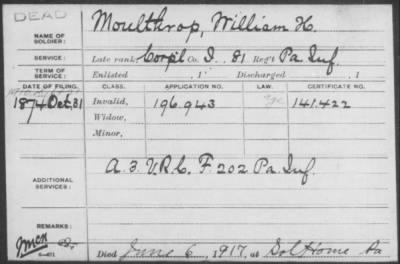 DEAD
NAME OF SOLDIER: Moulthrop, William H.
SERVICE: Late rank Corp'l Co. I, 81 Reg't Pa Inf.
TERM OF SERVICE: Enlisted , 1 Discharged , 1
DATE OF FILING. CLASS. APPLICATION NO. LAW. CERTIFICATE NO.
1874 Oct. 31 Invalid, 196.943 141.422
Widow,
Minor,
ADDITIONAL SERVICES: A. 3. V.R.C. F. 202 Pa Inf.
REMARKS:
Died June 6, 1917, at Sol Home Pa